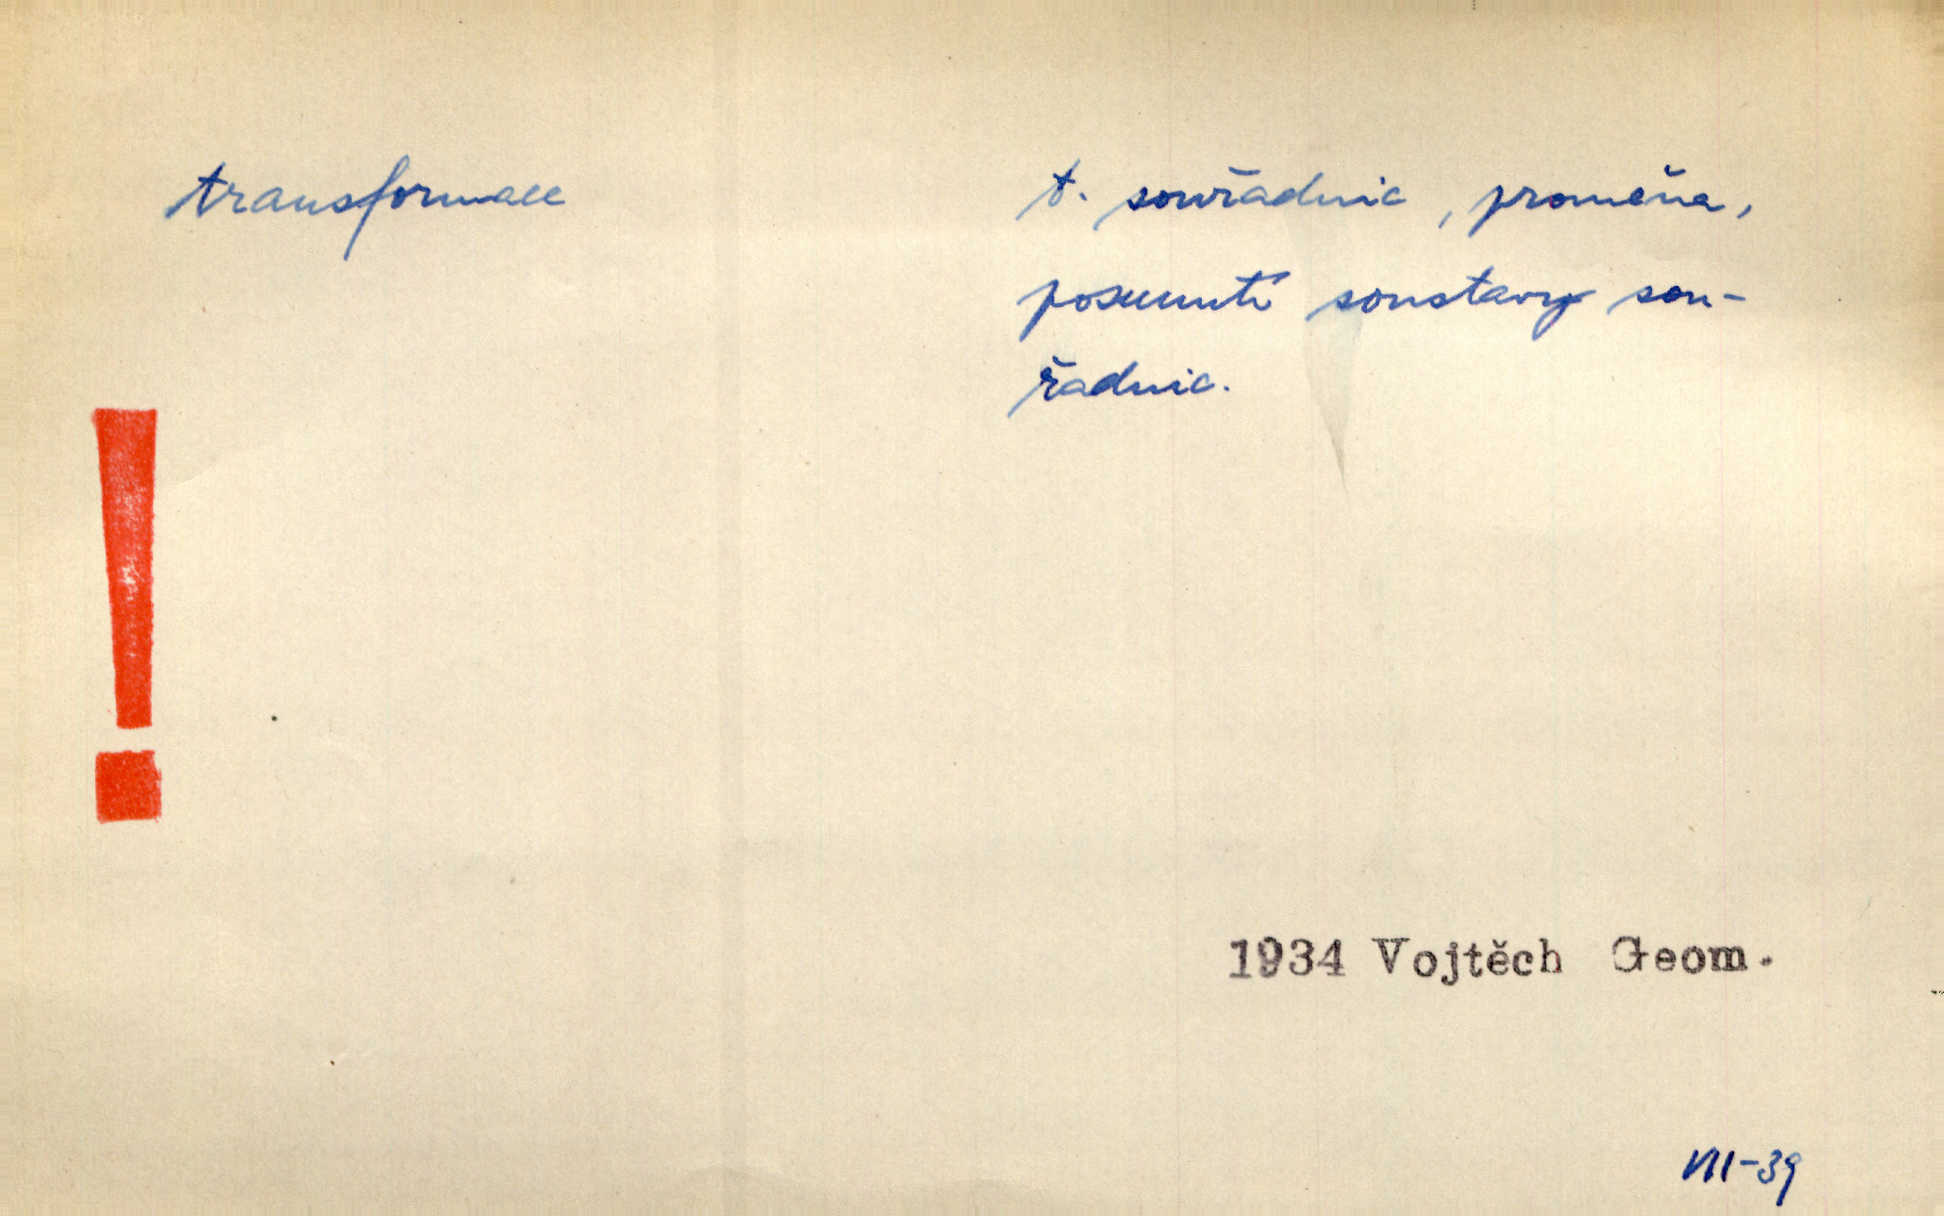 transformace
t. souřadnic, proměna,
posunutí soustavy sou-
řadnic.
!
1934 Vojtěch Geom.
VII-39